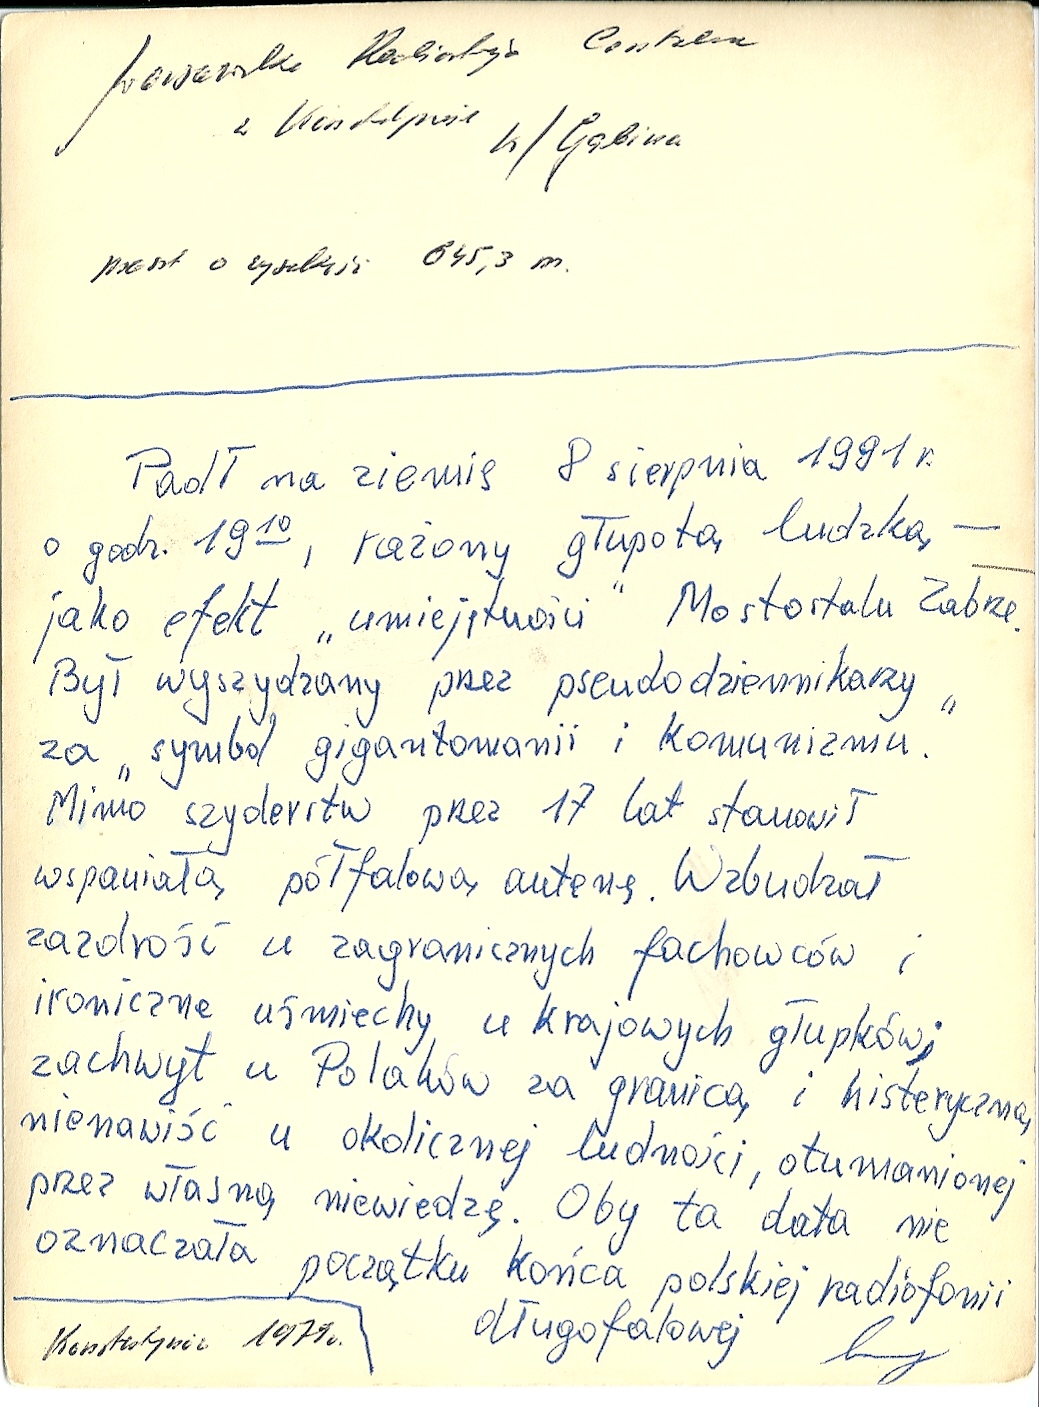 Warszawska Radiostacja Centralna
w Konstantynowie k/Gąbina
maszt o wysokości 645,3 m.
Padł na ziemię 8 sierpnia 1991 r.
o godz. 19¹⁰, rażony głupotą ludzką —
jako efekt „umiejętności" Mostostalu Zabrze.
Był wyszydzany przez pseudodziennikarzy
za „symbol gigantomanii i komunizmu".
Mimo szyderstw przez 17 lat stanowił
wspaniałą półfalową antenę. Wzbudzał
zazdrość u zagranicznych fachowców i
ironiczne uśmiechy u krajowych głupków;
zachwyt u Polaków za granicą i histeryczną
nienawiść u okolicznej ludności, otumanionej
przez własną niewiedzę. Oby ta data nie
oznaczała początku końca polskiej radiofonii
długofalowej
Konstantynów 1979r.